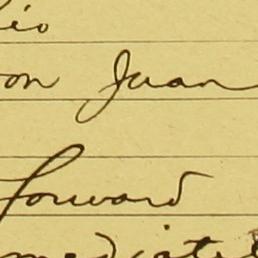 io
on Juan
forward
mediate